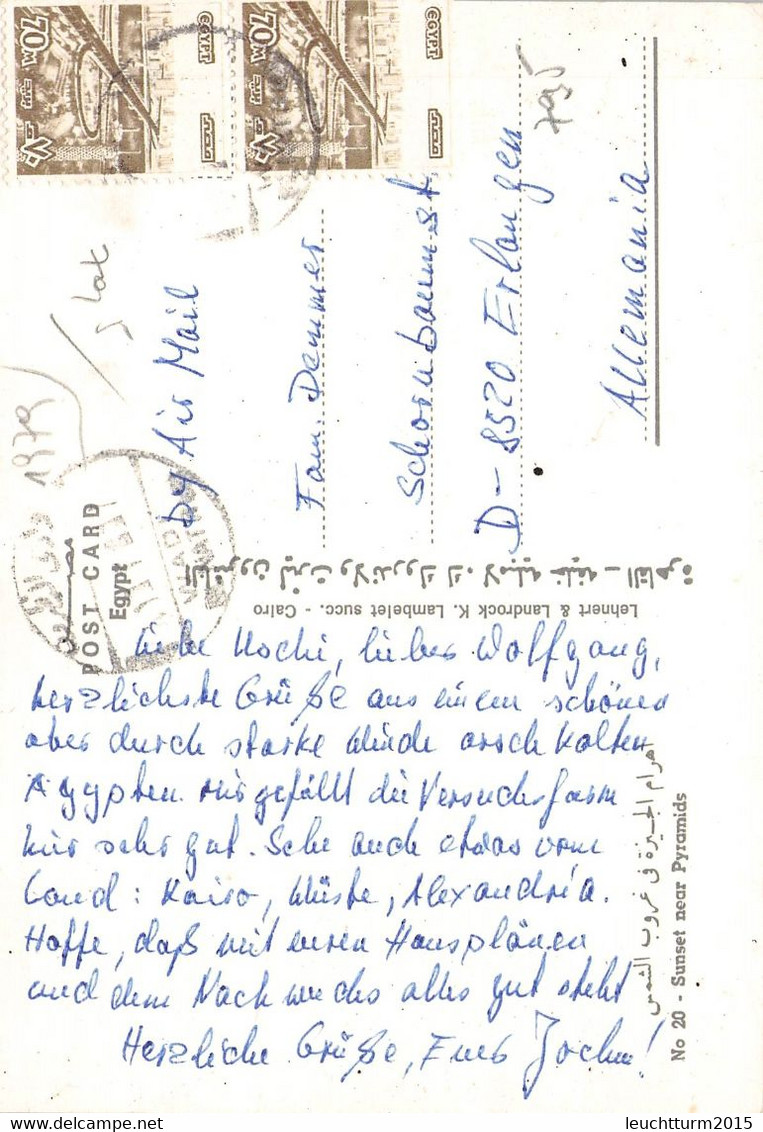 EGYPT
70M
مصر
EGYPT
70M
مصر
1979
POST CARD
Egypt
By Air Mail
Fam. Demmer
Schornbaumst.
D-8520 Erlangen
Allemania
Lehnert & Landrock K. Lambelet succ. - Cairo
Liebe Uschi, lieber Wolfgang,
herzlichste Grüße aus einem schönen
aber durch starke Winde arsch kalten
Ägypten. Mir gefällt die Versuchsfarm
hier sehr gut. Sehe auch etwas vom
Land: Kairo, Wüste, Alexandria.
Hoffe, daß mit euren Hausplänen
und dem Nachwuchs alles gut steht
Herzliche Grüße, Euer Jochen!
اهرام الجيزة فى غروب الشمس
No 20 - Sunset near Pyramids
leuchtturm2015